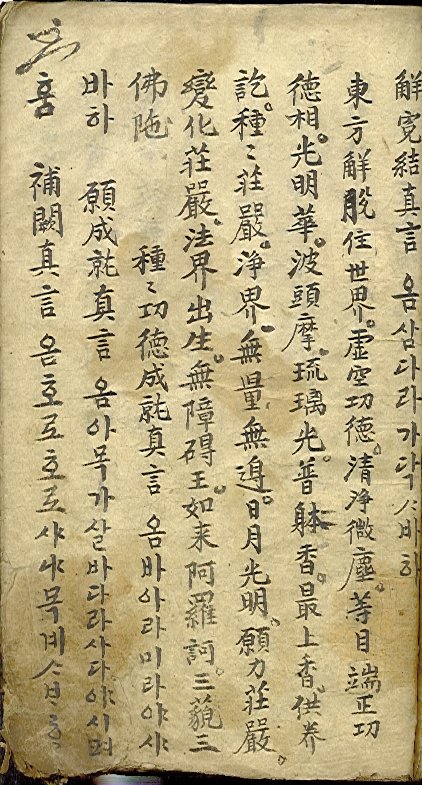 解寃結真言 옴삼다라가닥ᄉᆞ바하
東方解脫住世界。虛空功德。清淨微塵。等目端正功
德相。光明華。波頭摩。琉璃光。普躰香。最上香。供养
訖。種〻莊嚴。淨界。無量無邉。日月光明。願力莊嚴。
變化莊嚴。法界出生。無障碍王如来阿羅訶。三藐三
佛陁 種〻功德成就真言 옴바아라미라야사
바하 願成就真言 옴아목가살바다라사다야시며
훔 補闕真言 옴호로호로사야목계ᄉᆞ바하